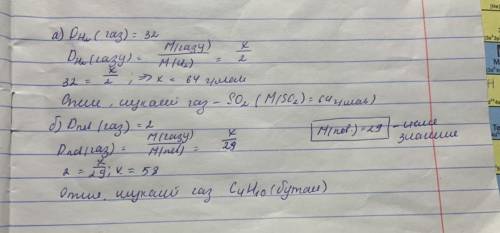 а) D H₂ (газ) = 32
D H₂ (газу) = M(газу) / M(H₂) = x / 2
32 = x / 2 ; => x = 64 г/моль
Отже, шуканий газ - SO₂ (M(SO₂) = 64 г/моль)
б) D пов (газ) = 2
D пов (газ) = M(газу) / M(пов) = x / 29
M(пов) = 29 - стале значення
2 = x / 29 ; x = 58
Отже, шуканий газ C₄H₁₀ (бутан)